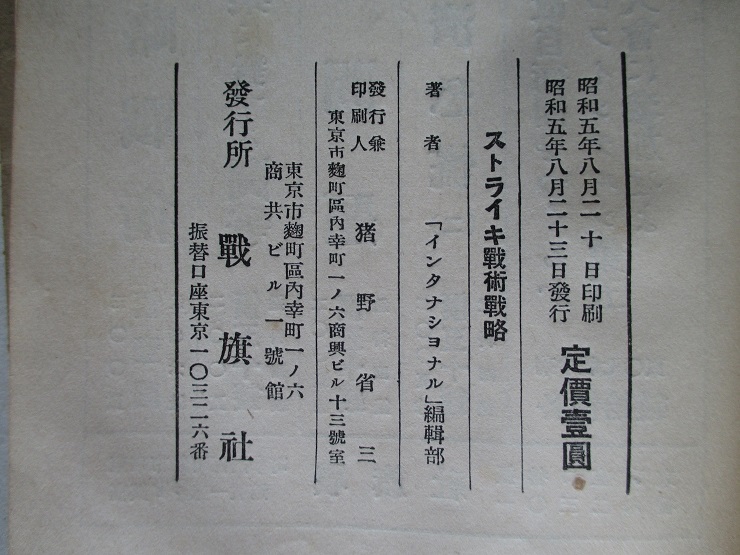 昭和五年八月二十日印刷
昭和五年八月二十三日發行
定價壹圓
ストライキ戰術戰略
著者 「インタナショナル」編輯部
發行兼印刷人 猪野省三
東京市麴町區內幸町一ノ六商興ビル十三號室
東京市麴町區內幸町一ノ六
商共ビル一號館
發行所 戰旗社
振替口座東京一〇三二六番